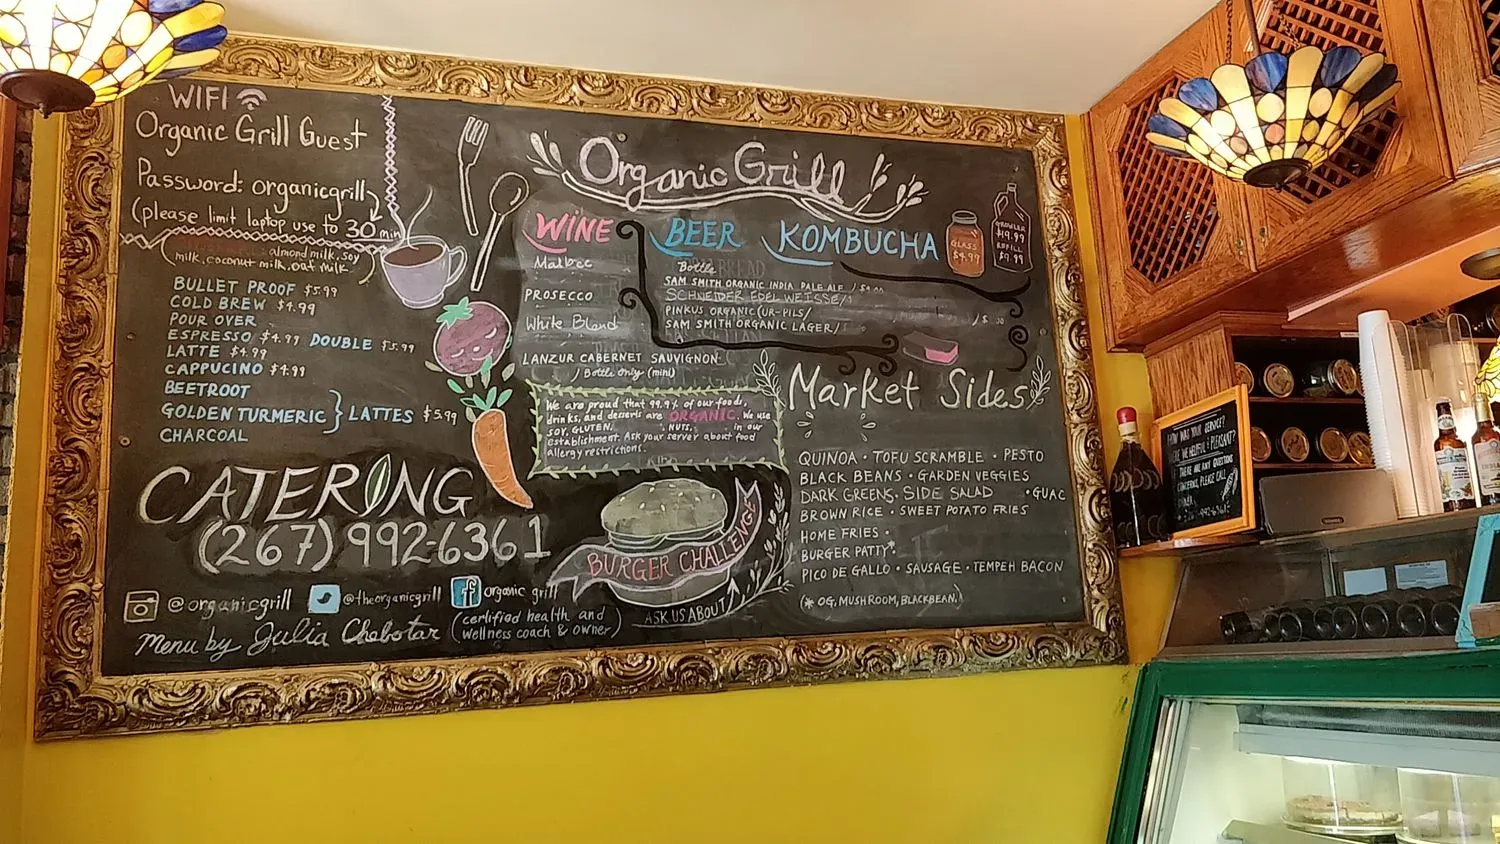 WIFI
Organic Grill Guest
Password: organicgrill
(please limit laptop use to 30 min
almond milk, soy
milk, coconut milk, oat milk.)
BULLET PROOF $5.99
COLD BREW $4.99
POUR OVER
ESPRESSO $4.99 DOUBLE $5.99
LATTE $4.99
CAPPUCINO $4.99
BEETROOT
GOLDEN TURMERIC } LATTES $5.99
CHARCOAL
CATERING
(267) 992-6361
@organicgrill @theorganicgrill organic grill
Menu by Julia Chebotar (certified health and
wellness coach & owner)
Organic Grill
WINE BEER KOMBUCHA
Malbec
PROSECCO
White Blend
LANZUR CABERNET SAUVIGNON
/ Bottle only (mini)
Bottle
SAM SMITH ORGANIC INDIA PALE ALE /
SCHNEIDER EDEL WEISSE/
PINKUS ORGANIC (UR-PILS/
SAM SMITH ORGANIC LAGER/
GLASS
$4.99
GROWLER
$19.99
REFILL
$9.99
We are proud that 99.9% of our foods,
drinks, and desserts are ORGANIC. We use
SOY, GLUTEN, NUTS, in our
establishment. Ask your server about food
allergy restrictions.
BURGER CHALLENGE
ASK US ABOUT
Market Sides
QUINOA • TOFU SCRAMBLE • PESTO
BLACK BEANS • GARDEN VEGGIES
DARK GREENS • SIDE SALAD • GUAC
BROWN RICE • SWEET POTATO FRIES
HOME FRIES •
BURGER PATTY*
PICO DE GALLO • SAUSAGE • TEMPEH BACON
(* OG, MUSHROOM, BLACKBEAN,)
HOW WAS YOUR SERVICE?
WE HELPFUL & PLEASANT?
THERE ARE ANY QUESTIONS
CONCERNS, PLEASE CALL